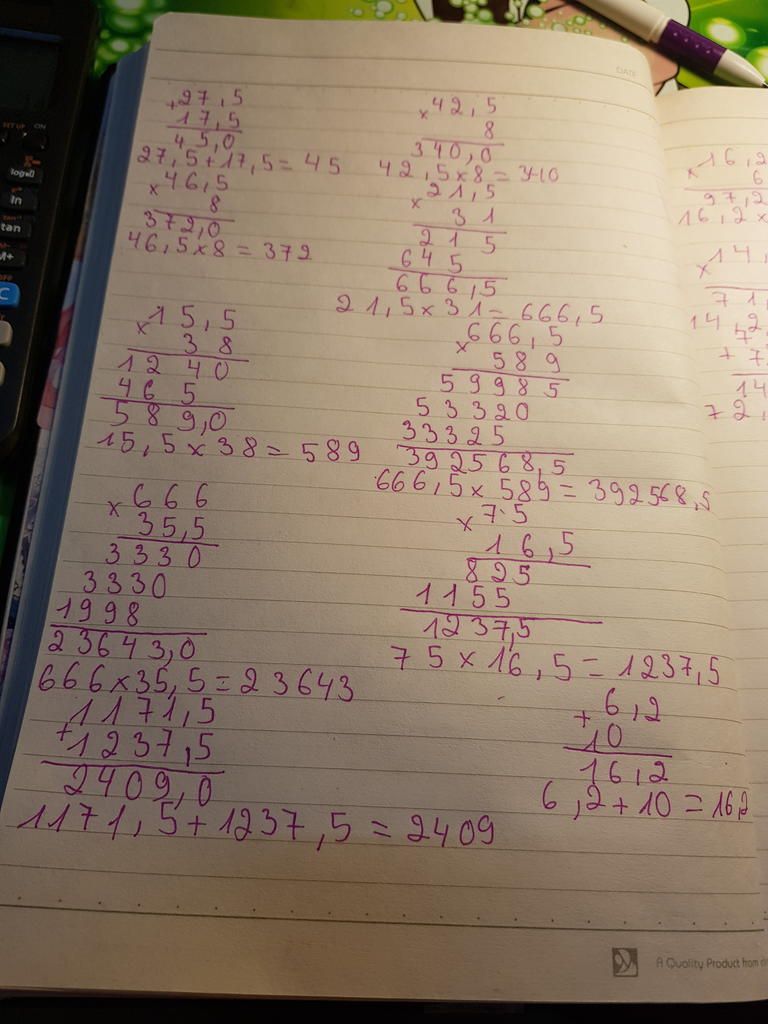 DATE
SET UP
ON
log
ln
tan
M+
C
+27,5
17,5
45,0
27,5+17,5=45
×46,5
8
372,0
46,5×8=372
×42,5
8
340,0
42,5×8=340
×21,5
31
215
645
666,5
21,5×31=666,5
×15,5
38
1240
465
589,0
15,5×38=589
×666,5
589
59985
53320
33325
392568,5
666,5×589=392568,5
×666
35,5
3330
3330
1998
23643,0
666×35,5=23643
×75
16,5
825
1155
1237,5
75×16,5=1237,5
1171,5
+1237,5
2409,0
1171,5+1237,5=2409
6,2
+10
16,2
6,2+10=16,2
×16,2
6
97,2
16,2×
×14,
71,
14,2
+7
14
72,
A Quality Product from